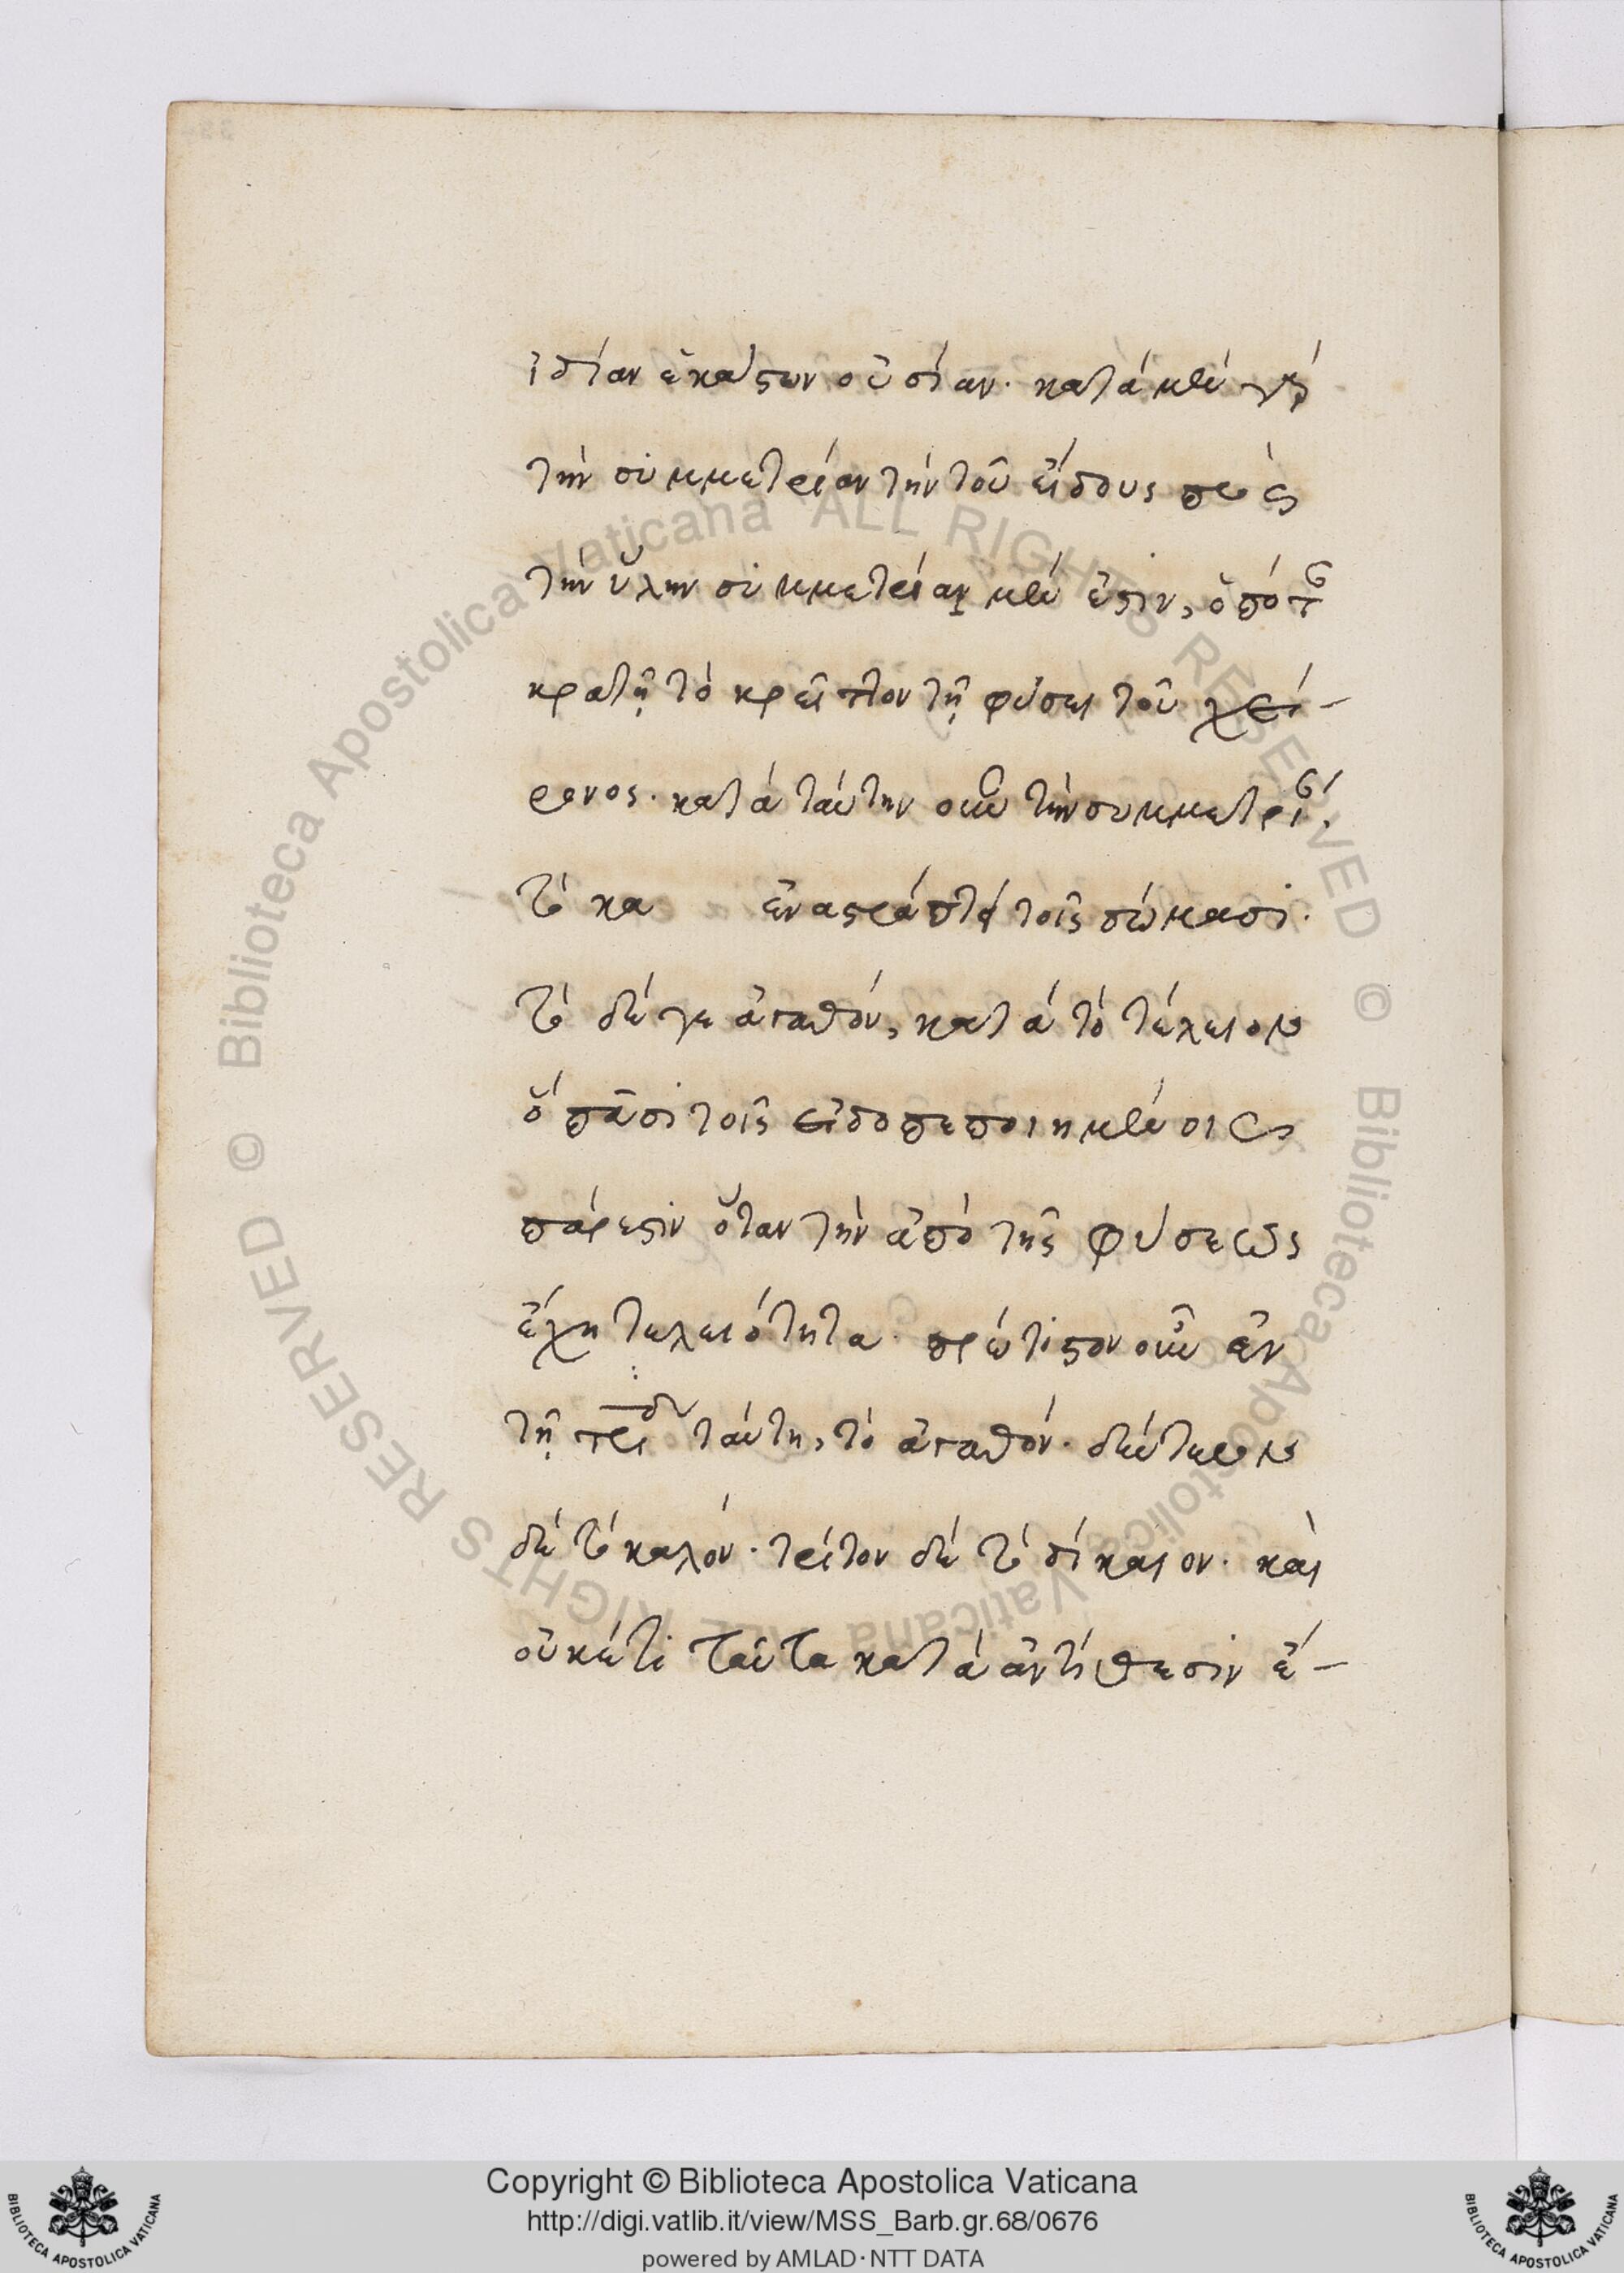 ἰδίαν ἑκάστων οὐσίαν. κατὰ μὲν γὰρ
τὴν συμμετρίαν τὴν τοῦ εἴδους πρὸς
τὴν ὕλην συμμετρίαν μέν ἐστιν, ὁπότ
κρατῆ τὸ κρεῖττον τῇ φύσει τοῦ χεί-
ρονος. κατὰ ταύτην οὖν τὴν συμμετρί.
τὸ κα ἐναστράπτει τοῖς σώμασι.
τὸ δέ γε ἀγαθόν, κατὰ τὸ τέλειον
ὃ πᾶσι τοῖς εἰδοπεποιημένοις
πάρεστιν ὅταν τὴν ἀπὸ τῆς φύσεως
ἔχη τελειότητα. πρώτιστον οὖν ἐν
τῇ τρι δ ταύτη, τὸ ἀγαθόν. δεύτερον
δὲ τὸ καλόν. τρίτον δὲ τὸ δίκαιον. καὶ
οὐκέτι ταῦτα κατὰ ἀντίθεσιν ἔ-
Biblioteca Apostolica Vaticana ALL RIGHTS RESERVED ©
Biblioteca Apostolica Vaticana ALL RIGHTS RESERVED ©
Copyright © Biblioteca Apostolica Vaticana
http://digi.vatlib.it/view/MSS_Barb.gr.68/0676
powered by AMLAD·NTT DATA
BIBLIOTECA APOSTOLICA VATICANA
BIBLIOTECA APOSTOLICA VATICANA